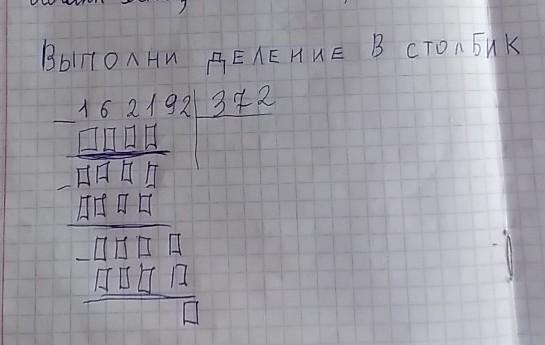 Выполни деление в столбик
162192 372